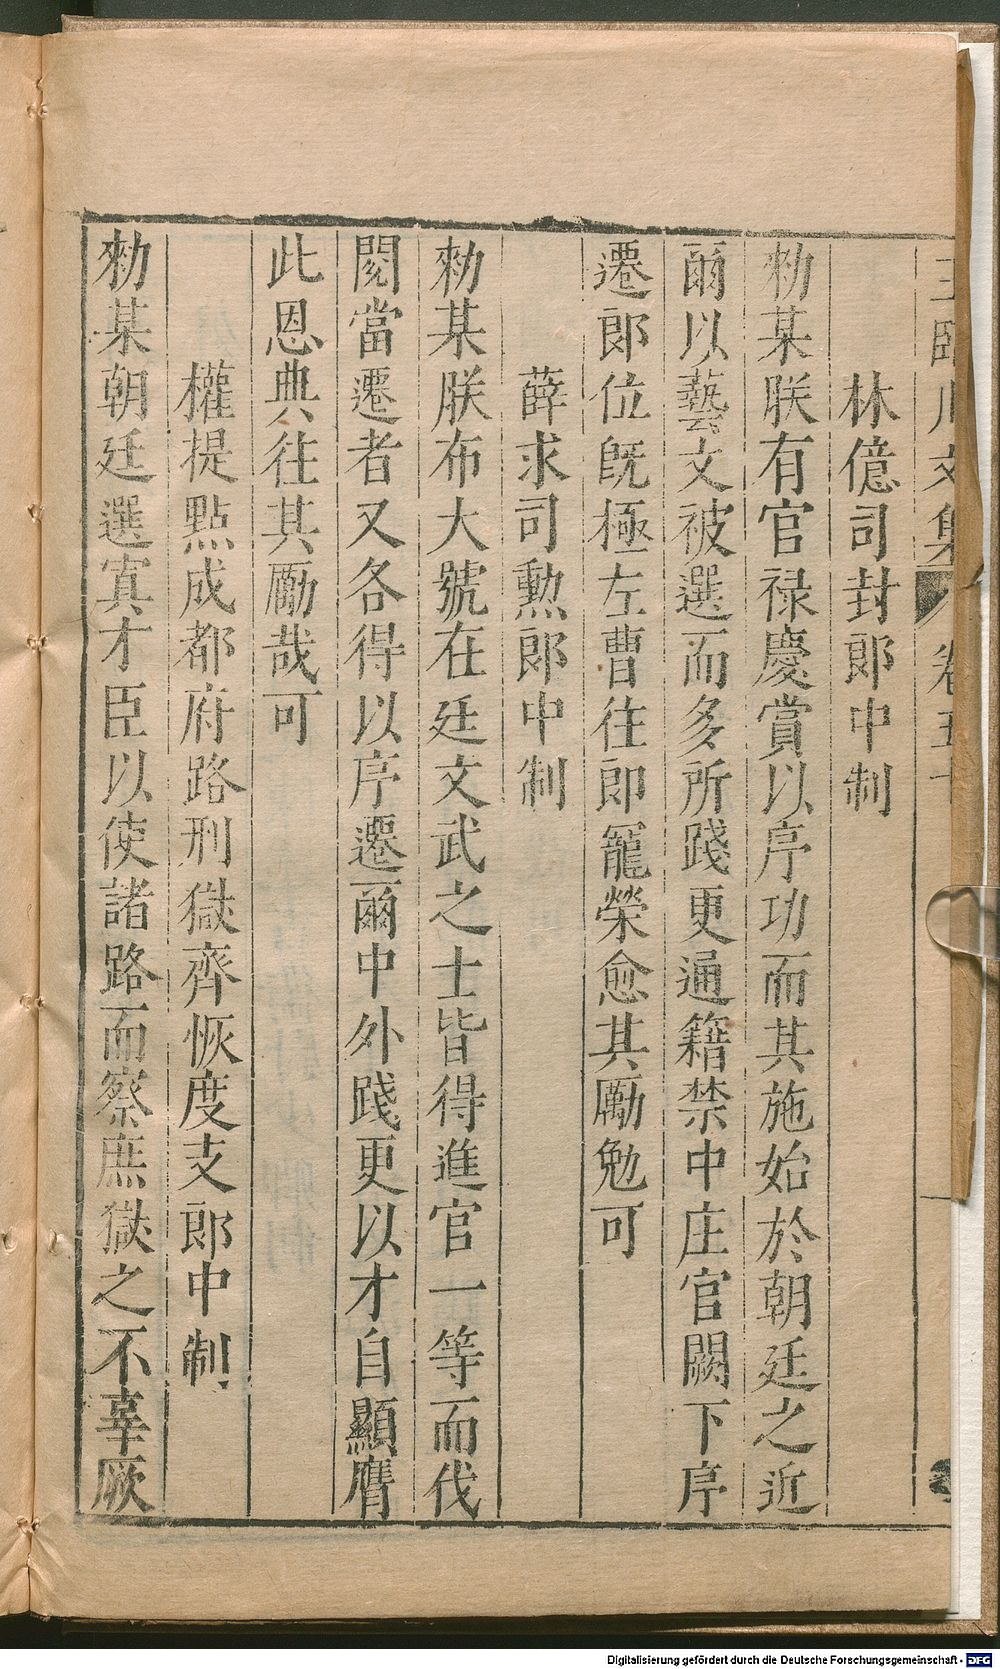 王臨川文集 卷五十
林億司封郎中制
勑某朕有官禄慶賞以序功而其施始於朝廷之近
爾以藝文被選而多所踐更通籍禁中庄官闕下序
遷郎位既極左曹往即寵榮愈其勵勉可
薛求司勲郎中制
勑某朕布大號在廷文武之士皆得進官一等而伐
閱當遷者又各得以序遷爾中外踐更以才自顯膺
此恩典往其勵哉可
權提點成都府路刑獄齊恢度支郎中制
勑某朝廷選寘才臣以使諸路而察庶獄之不辜厥
Digitalisierung gefördert durch die Deutsche Forschungsgemeinschaft - DFG